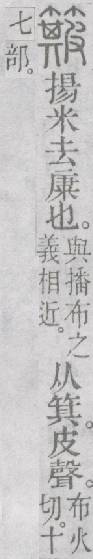 簸揚米去康也。與播布之義相近。从箕。皮聲。布火切。十
七部。